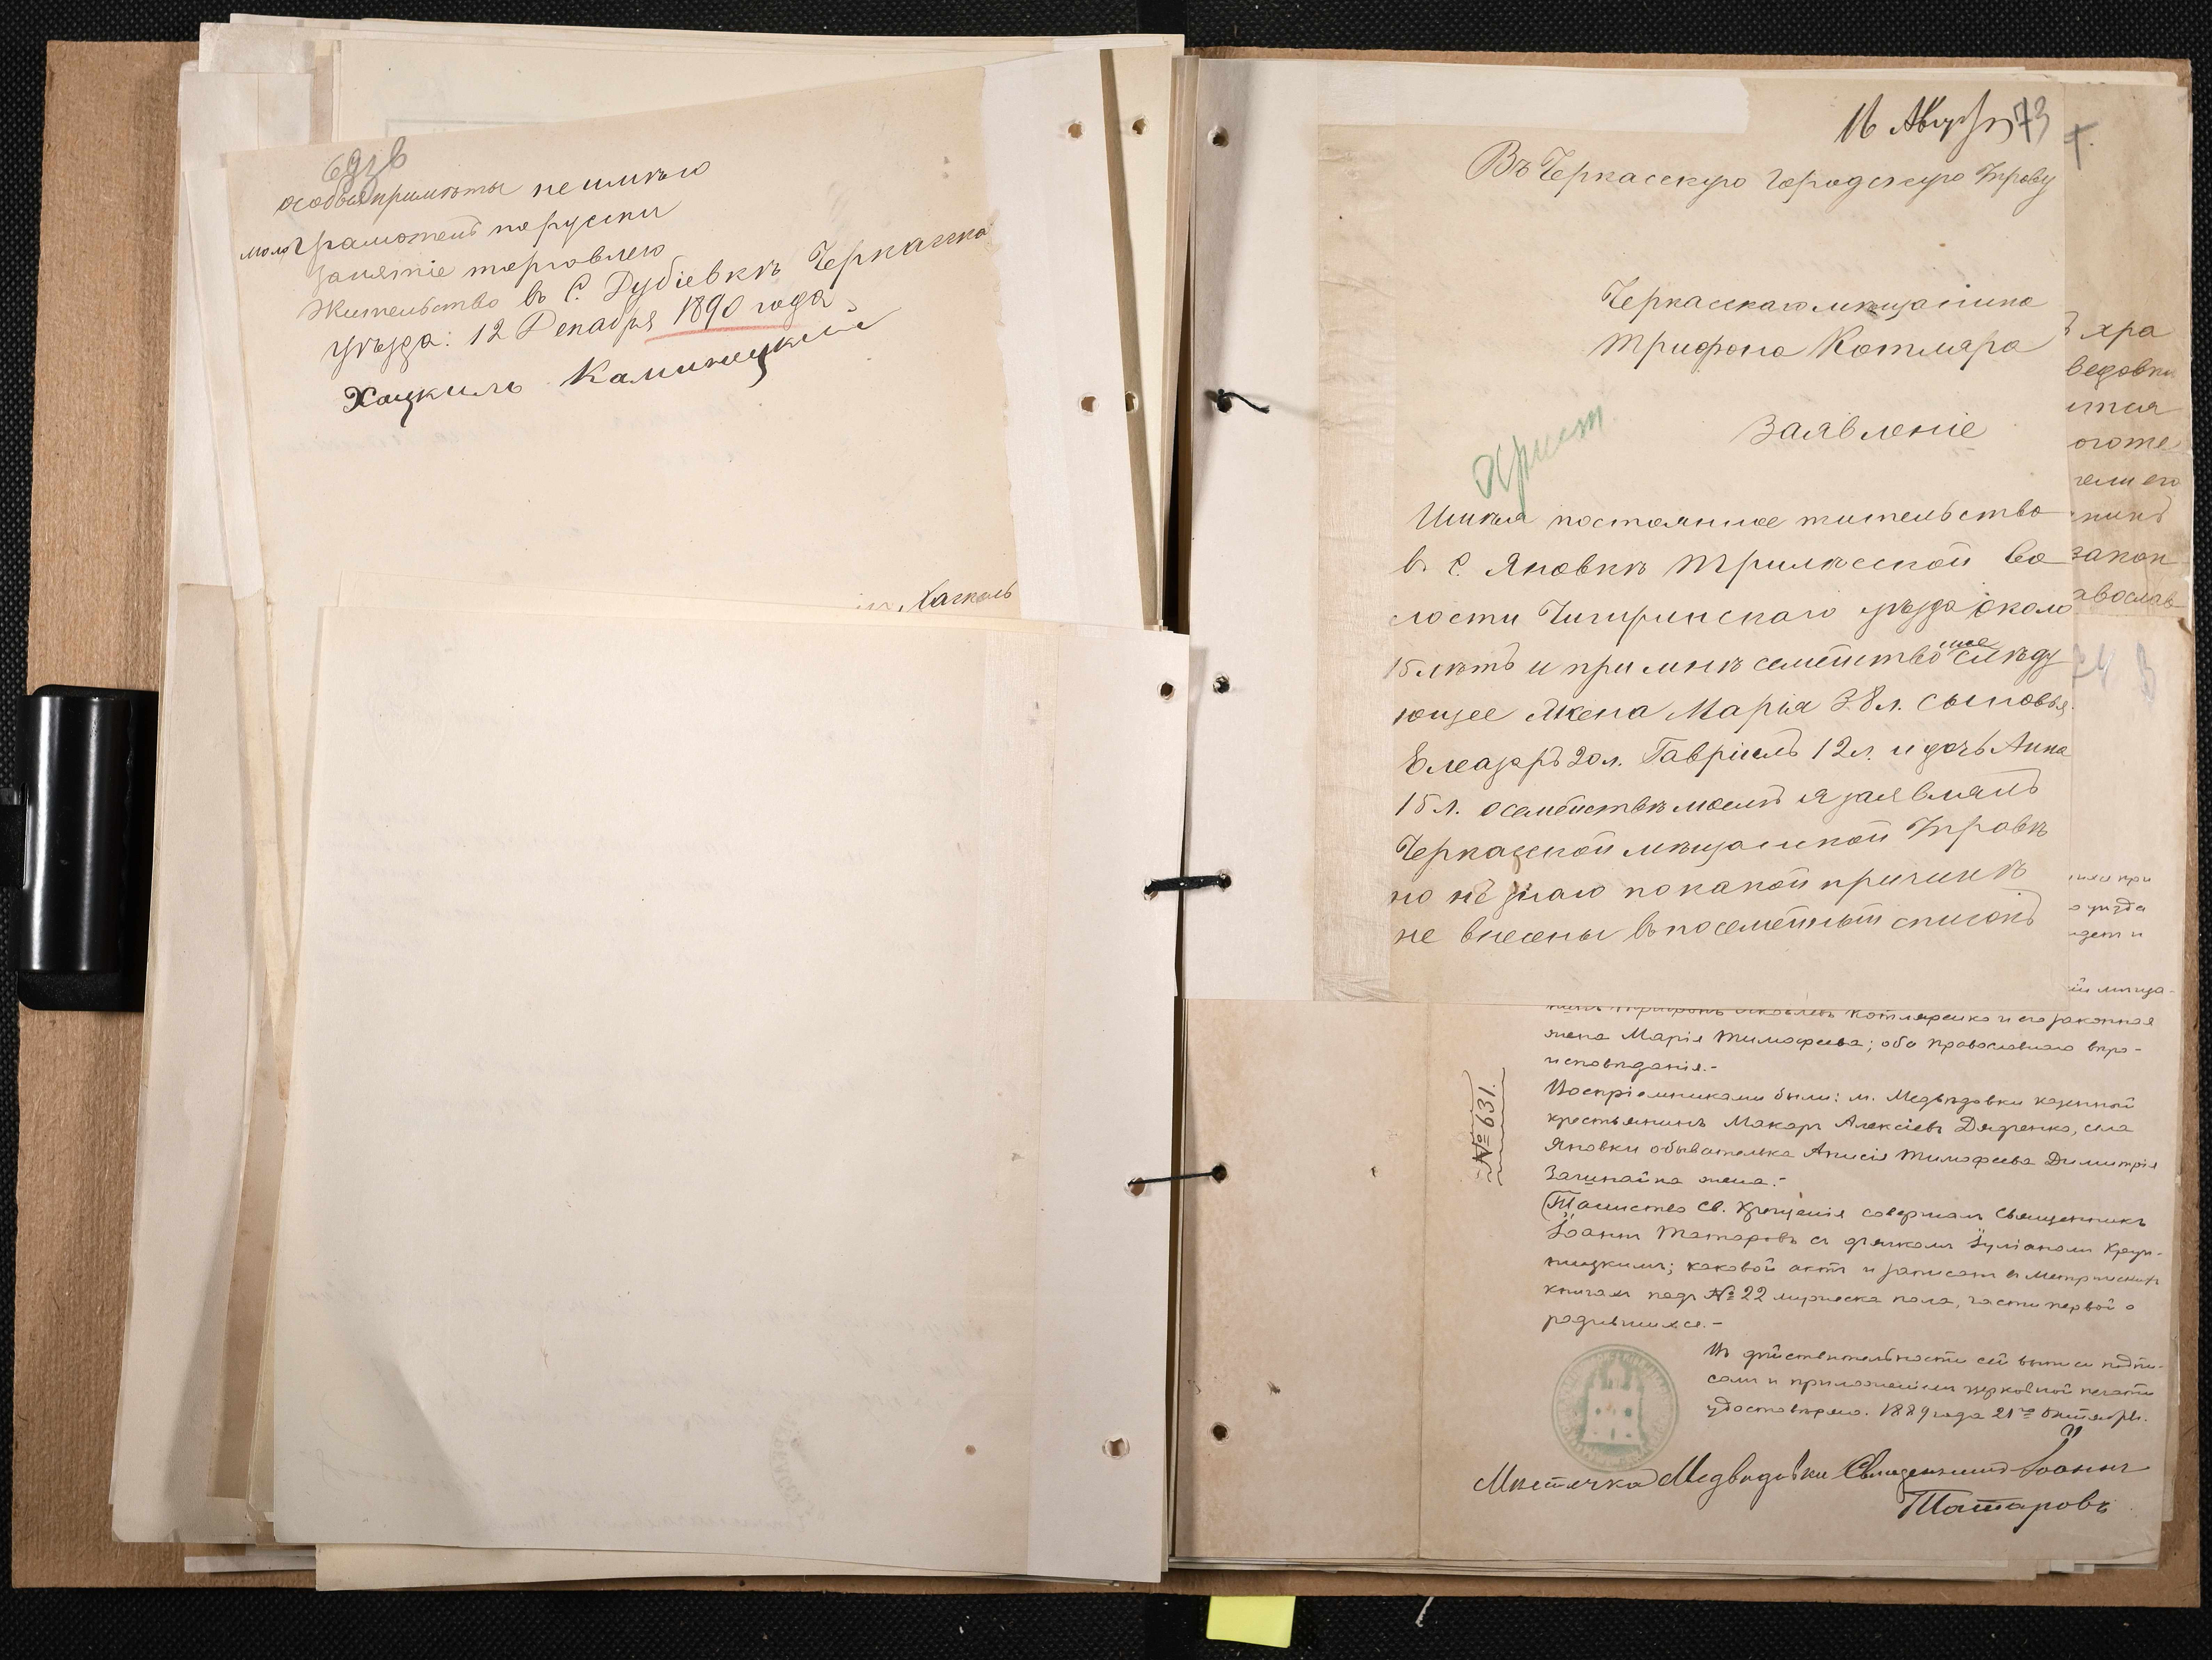 особыя приметы не имѣю
мало грамотенъ порусски
занятіе торговлею
Жительство въ С. Дубіевкѣ Черкаска
уѣзда: 12 Декабря 1890 года
Хацкиль Каминецкій
Хаскель
16 Августа 73
Въ Черкасскую Городскую Управу
Черкасскаго мѣщанина
Трифона Котляра
Заявленіе
Христ
Имѣя постоянное жительство
в. С. Яновкѣ Трилѣсской Во
лости Чигиринскаго уѣзда около
15 лѣтъ и при мнѣ семейство мое слѣду
ющее Жена Марія 38 л. сыновья
Елеазаръ 20 л. Гавріилъ 12 л. и дочь Анна
15 л. о семействѣ моемъ я заявлялъ
Черкасской мѣщанской Управѣ
но не знаю по какой причинѣ
не внесены въ посемейный списокъ
хра
ведовки
огоже
тели его
закон
авослав-
Котляренко и его законная
жена Марія Тимофеева; оба православнаго вѣро-
исповѣданія.-
№ 631.
Воспріемниками были: м. Медвѣдовки казенной
крестьянинъ Макаръ Алексіевъ Дядченко, села
Яновки обывателька Анисія Тимофеева Димитрія
Загинайка жена.-
Таинство Св. Крещенія совершалъ Священникъ
Іоаннъ Татаровъ съ дьячкомъ Іуліаномъ Круп-
ницкимъ; каковой актъ и записанъ въ метрическихъ
книгахъ подъ № 22 мужеска пола, части первой о
родившихся.-
Въ дѣйствительности сей выписи подпи-
сомъ и приложеніемъ церковной печати
удостовѣряю. 1889 года 21го Октября.
Мѣстечка Медвѣдовки Священникъ Іоаннъ
Татаровъ